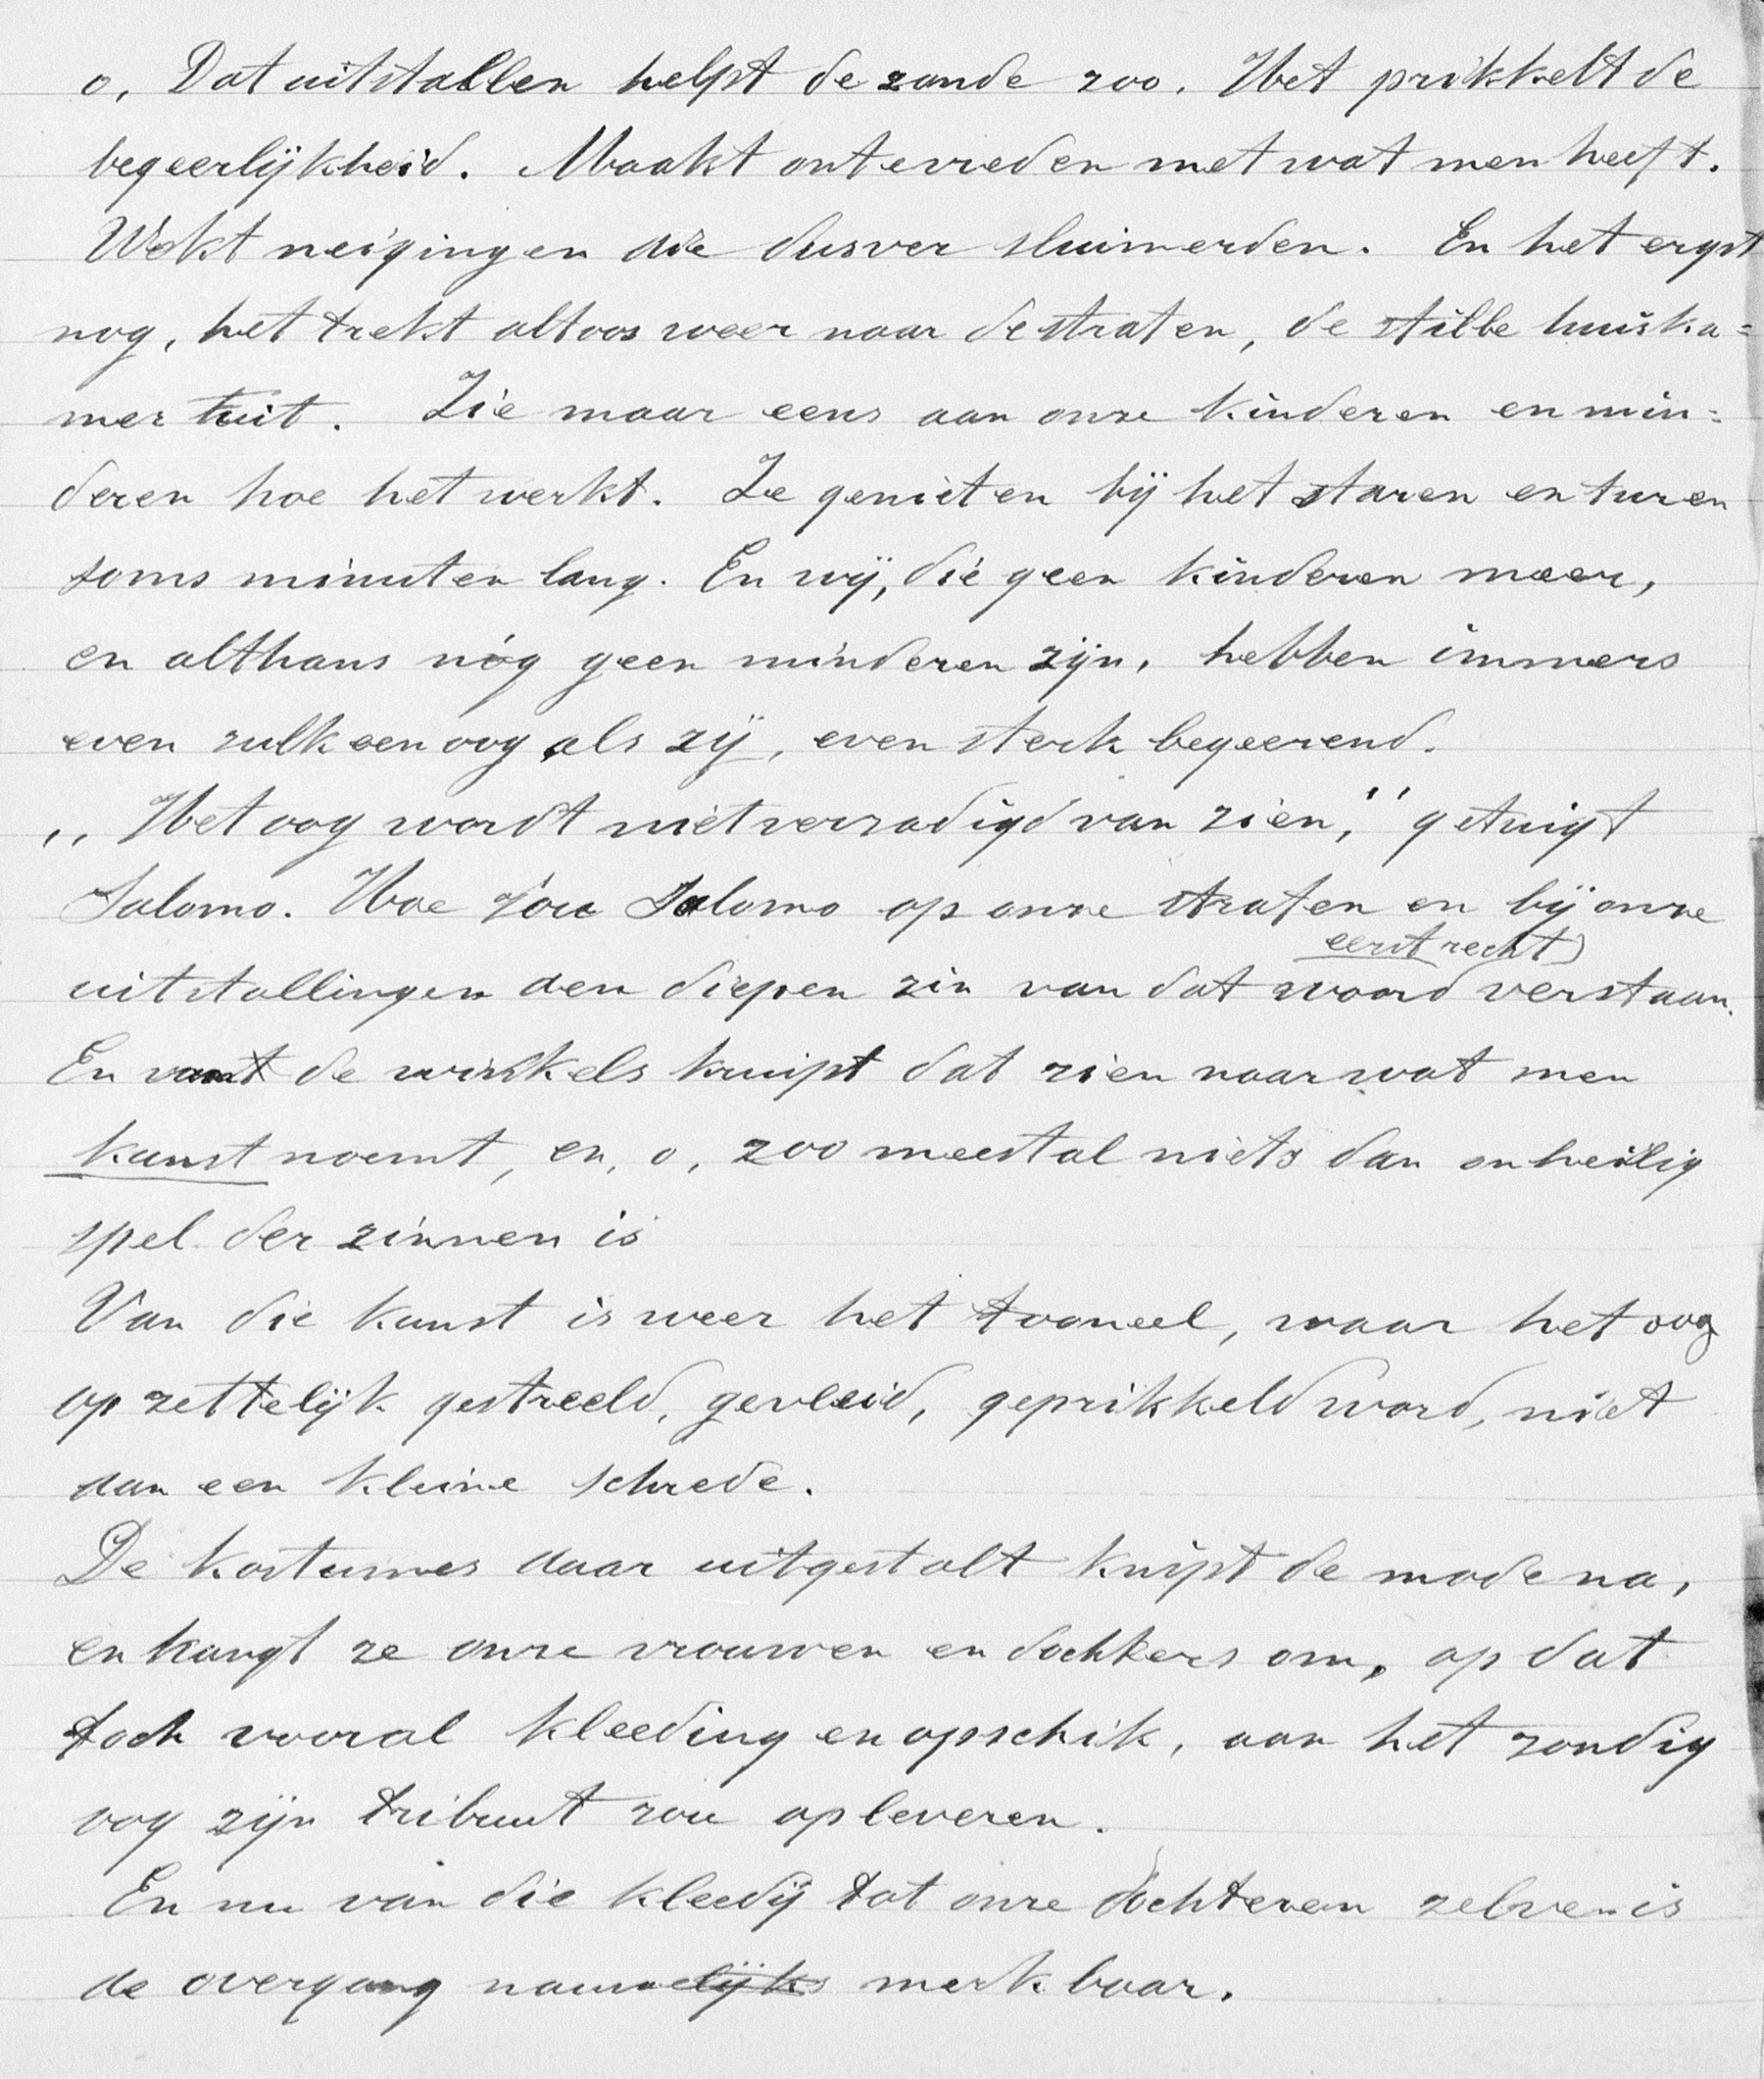 o, Dat uitstallen helpt de zonde zoo. Het prikkelt de
begeerlijkheid. Maakt ontevreden met wat men heeft.
Wekt neigingen die dusver sluimerden. En het ergst
nog, het trekt altoos weer naar de straten, de stille huiska=
mer uit. Zie maar eens aan onze kinderen en min=
deren hoe het werkt. Ze genieten bij het staren en turen
soms minuten lang. En wij, die geen kinderen meer,
en althans nóg geen minderen zijn, hebben immers
even zulk een oog als zij, even sterk begeerend.
,,Het oog wordt niet verzadigd van zien," getuigt
Salomo. Hoe zou Salomo op onze straten en bij onze
eerst recht
uitstallingen den diepen zin van dat woord verstaan.
En van de winkels kruipt dat zien naar wat men
kunst noemt, en, o, zoo meestal niets dan onheilig
spel der zinnen is
Van die kunst is weer het tooneel, waar het oog
opzettelijk gestreeld, gevleid, geprikkeld word, niet
dan een kleine schrede.
De kostumes daar uitgestalt knipt de mode na,
en hangt ze onze vrouwen en dochters om, op dat
toch vooral kleeding en opschik, aan het zondig
oog zijn tribuut zou opleveren.
En nu van die kleedij tot onze dochteren zelve is
de overgang nauwelijks merkbaar.